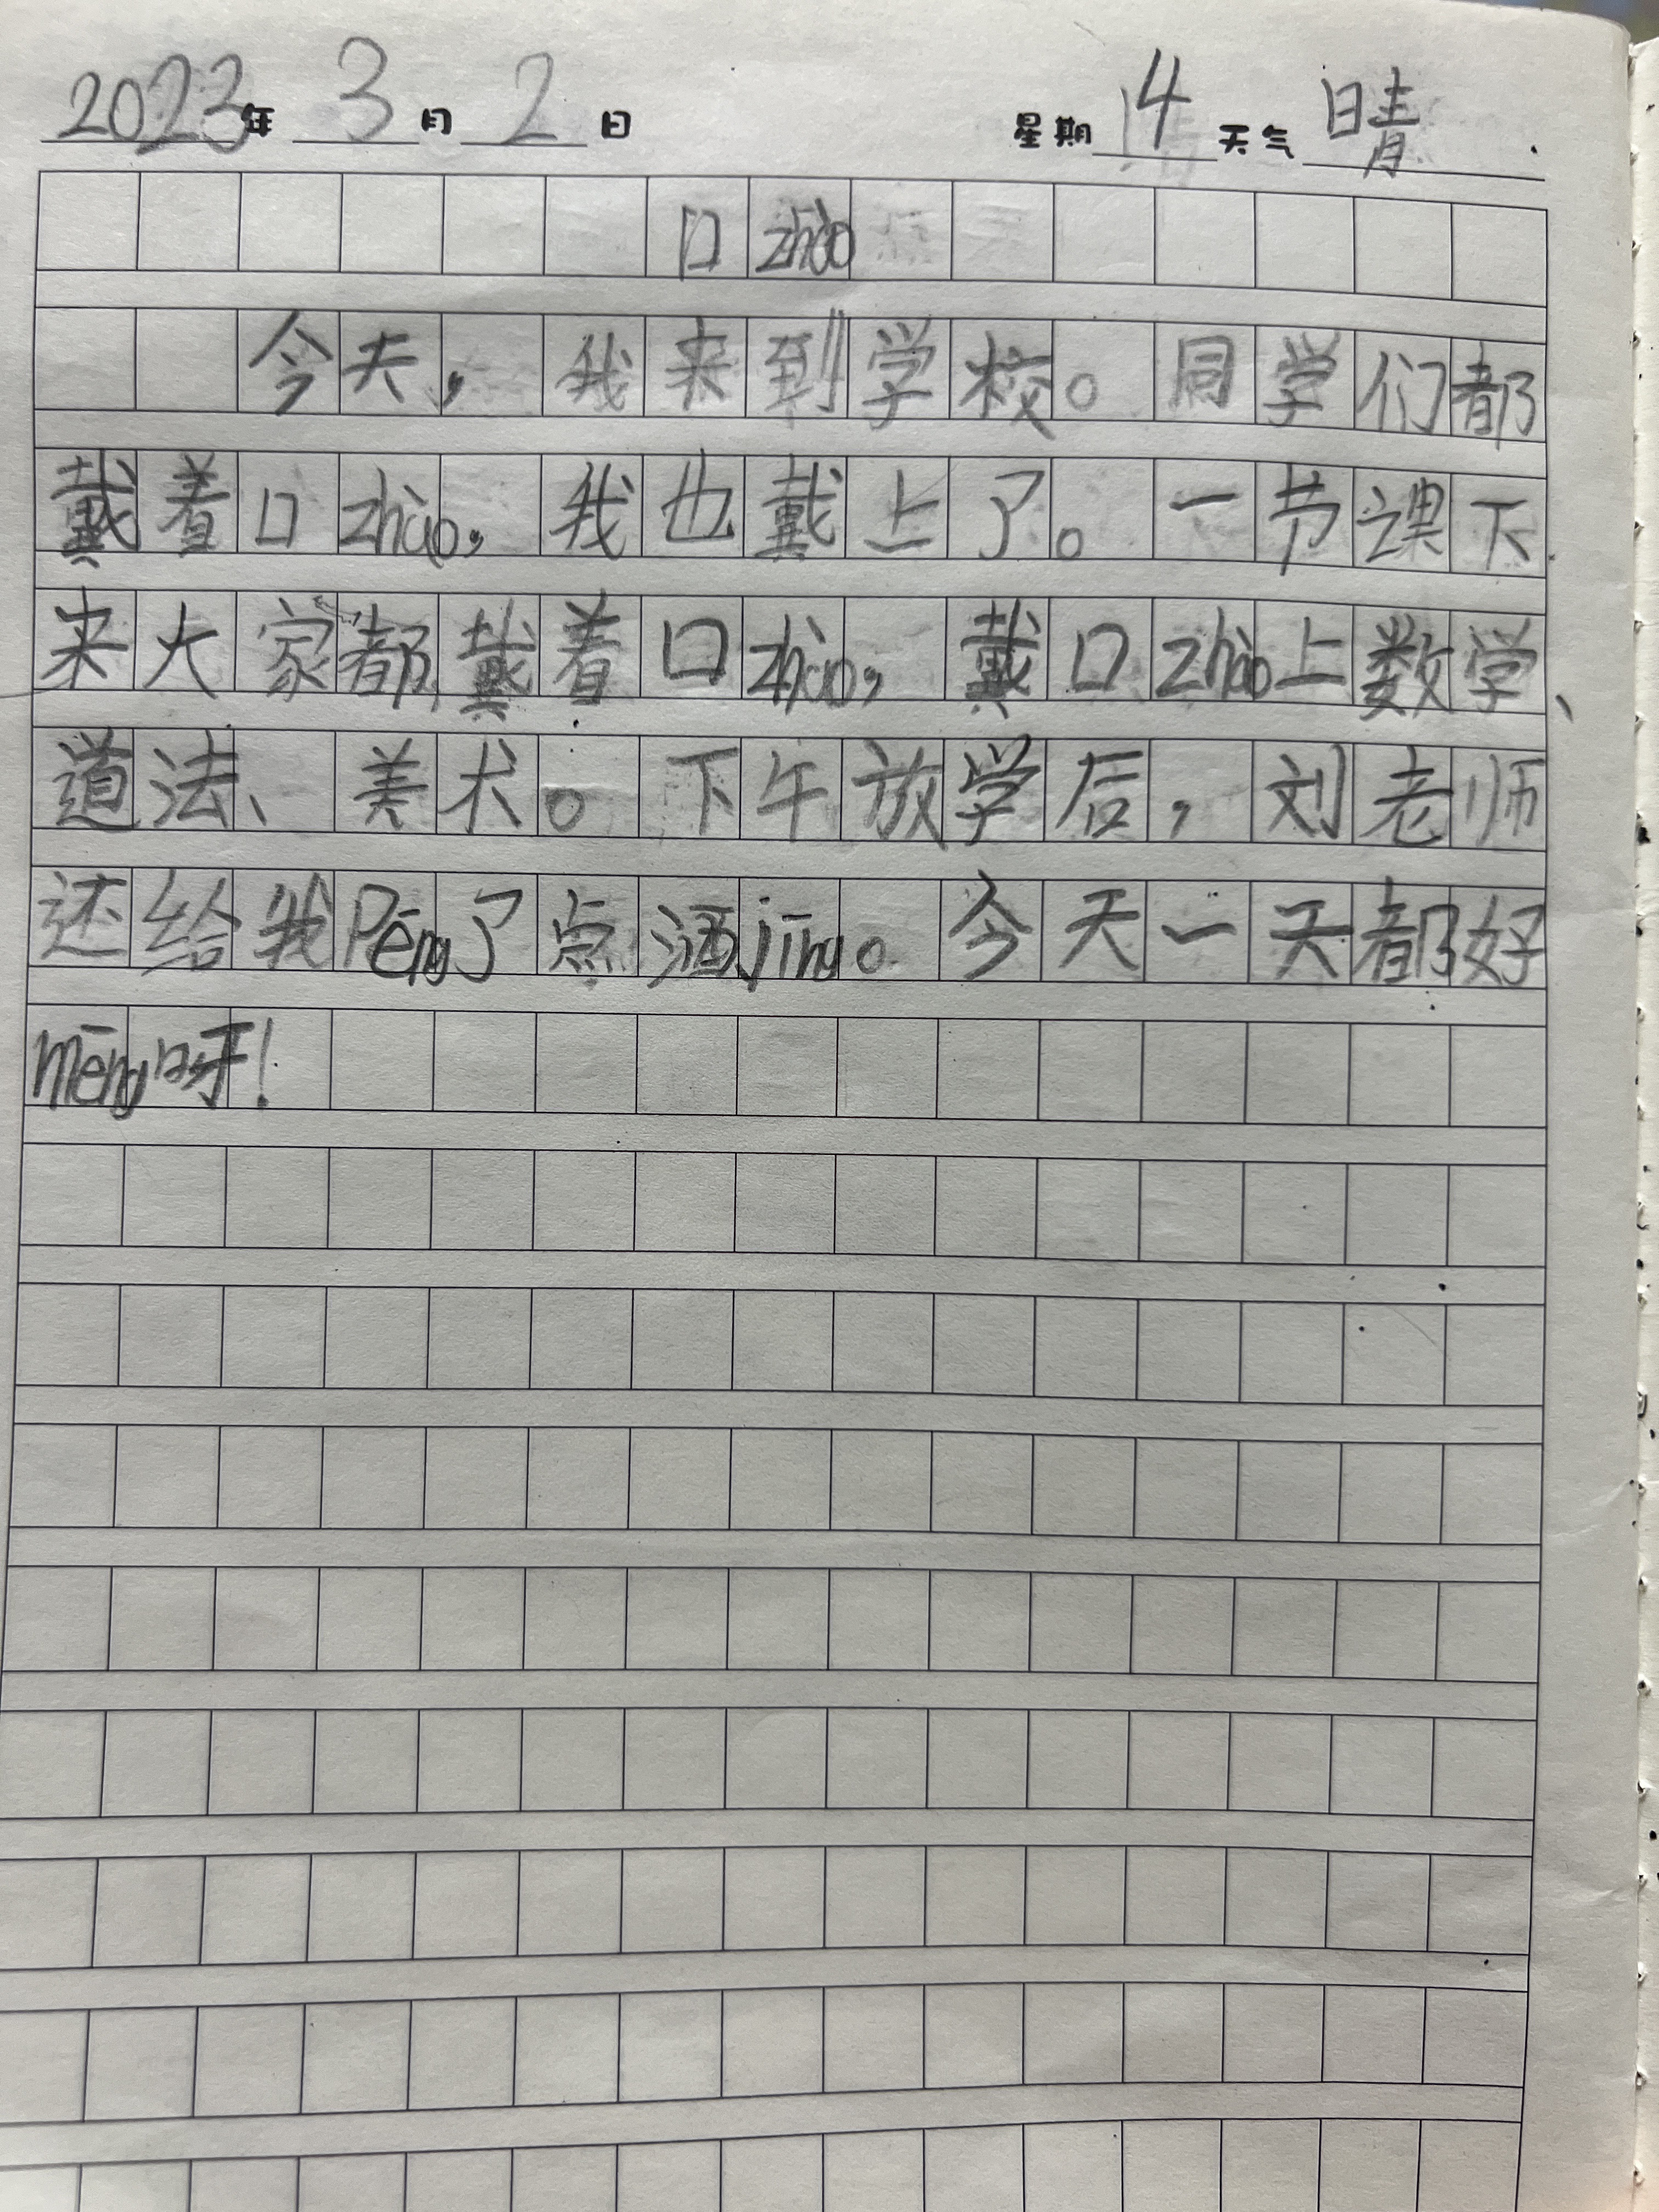 2023年 3 月 2 日 星期 4 天气 晴
口zhào
今天，我来到学校。同学们都
戴着口zhào，我也戴上了。一节课下
来大家都戴着口zhào，戴口zhào上数学、
道法、美术。下午放学后，刘老师
还给我Pēng了点洒jīng。今天一天都好
mēng呀！